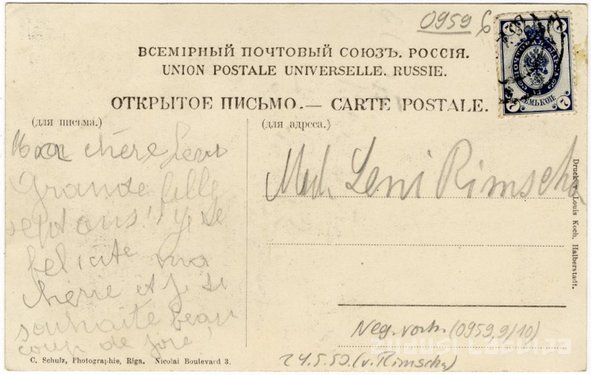 0959 6
ВСЕМІРНЫЙ ПОЧТОВЫЙ СОЮЗЪ. РОССІЯ.
UNION POSTALE UNIVERSELLE. RUSSIE.
ОТКРЫТОЕ ПИСЬМО.— CARTE POSTALE.
(для письма.)
(для адреса.)
Ma chère Leni
Grande fille
sept ans! je te
felicite ma
cherie et je te
souhaite beau
coup de joie
Mlle Leni Rimscha
Druck v. Louis Koch, Halberstadt.
Neg. vorh. (0959,9/10)
24.5.50 (v. Rimscha)
C. Schulz, Photographie, Riga. Nicolai Boulevard 3.